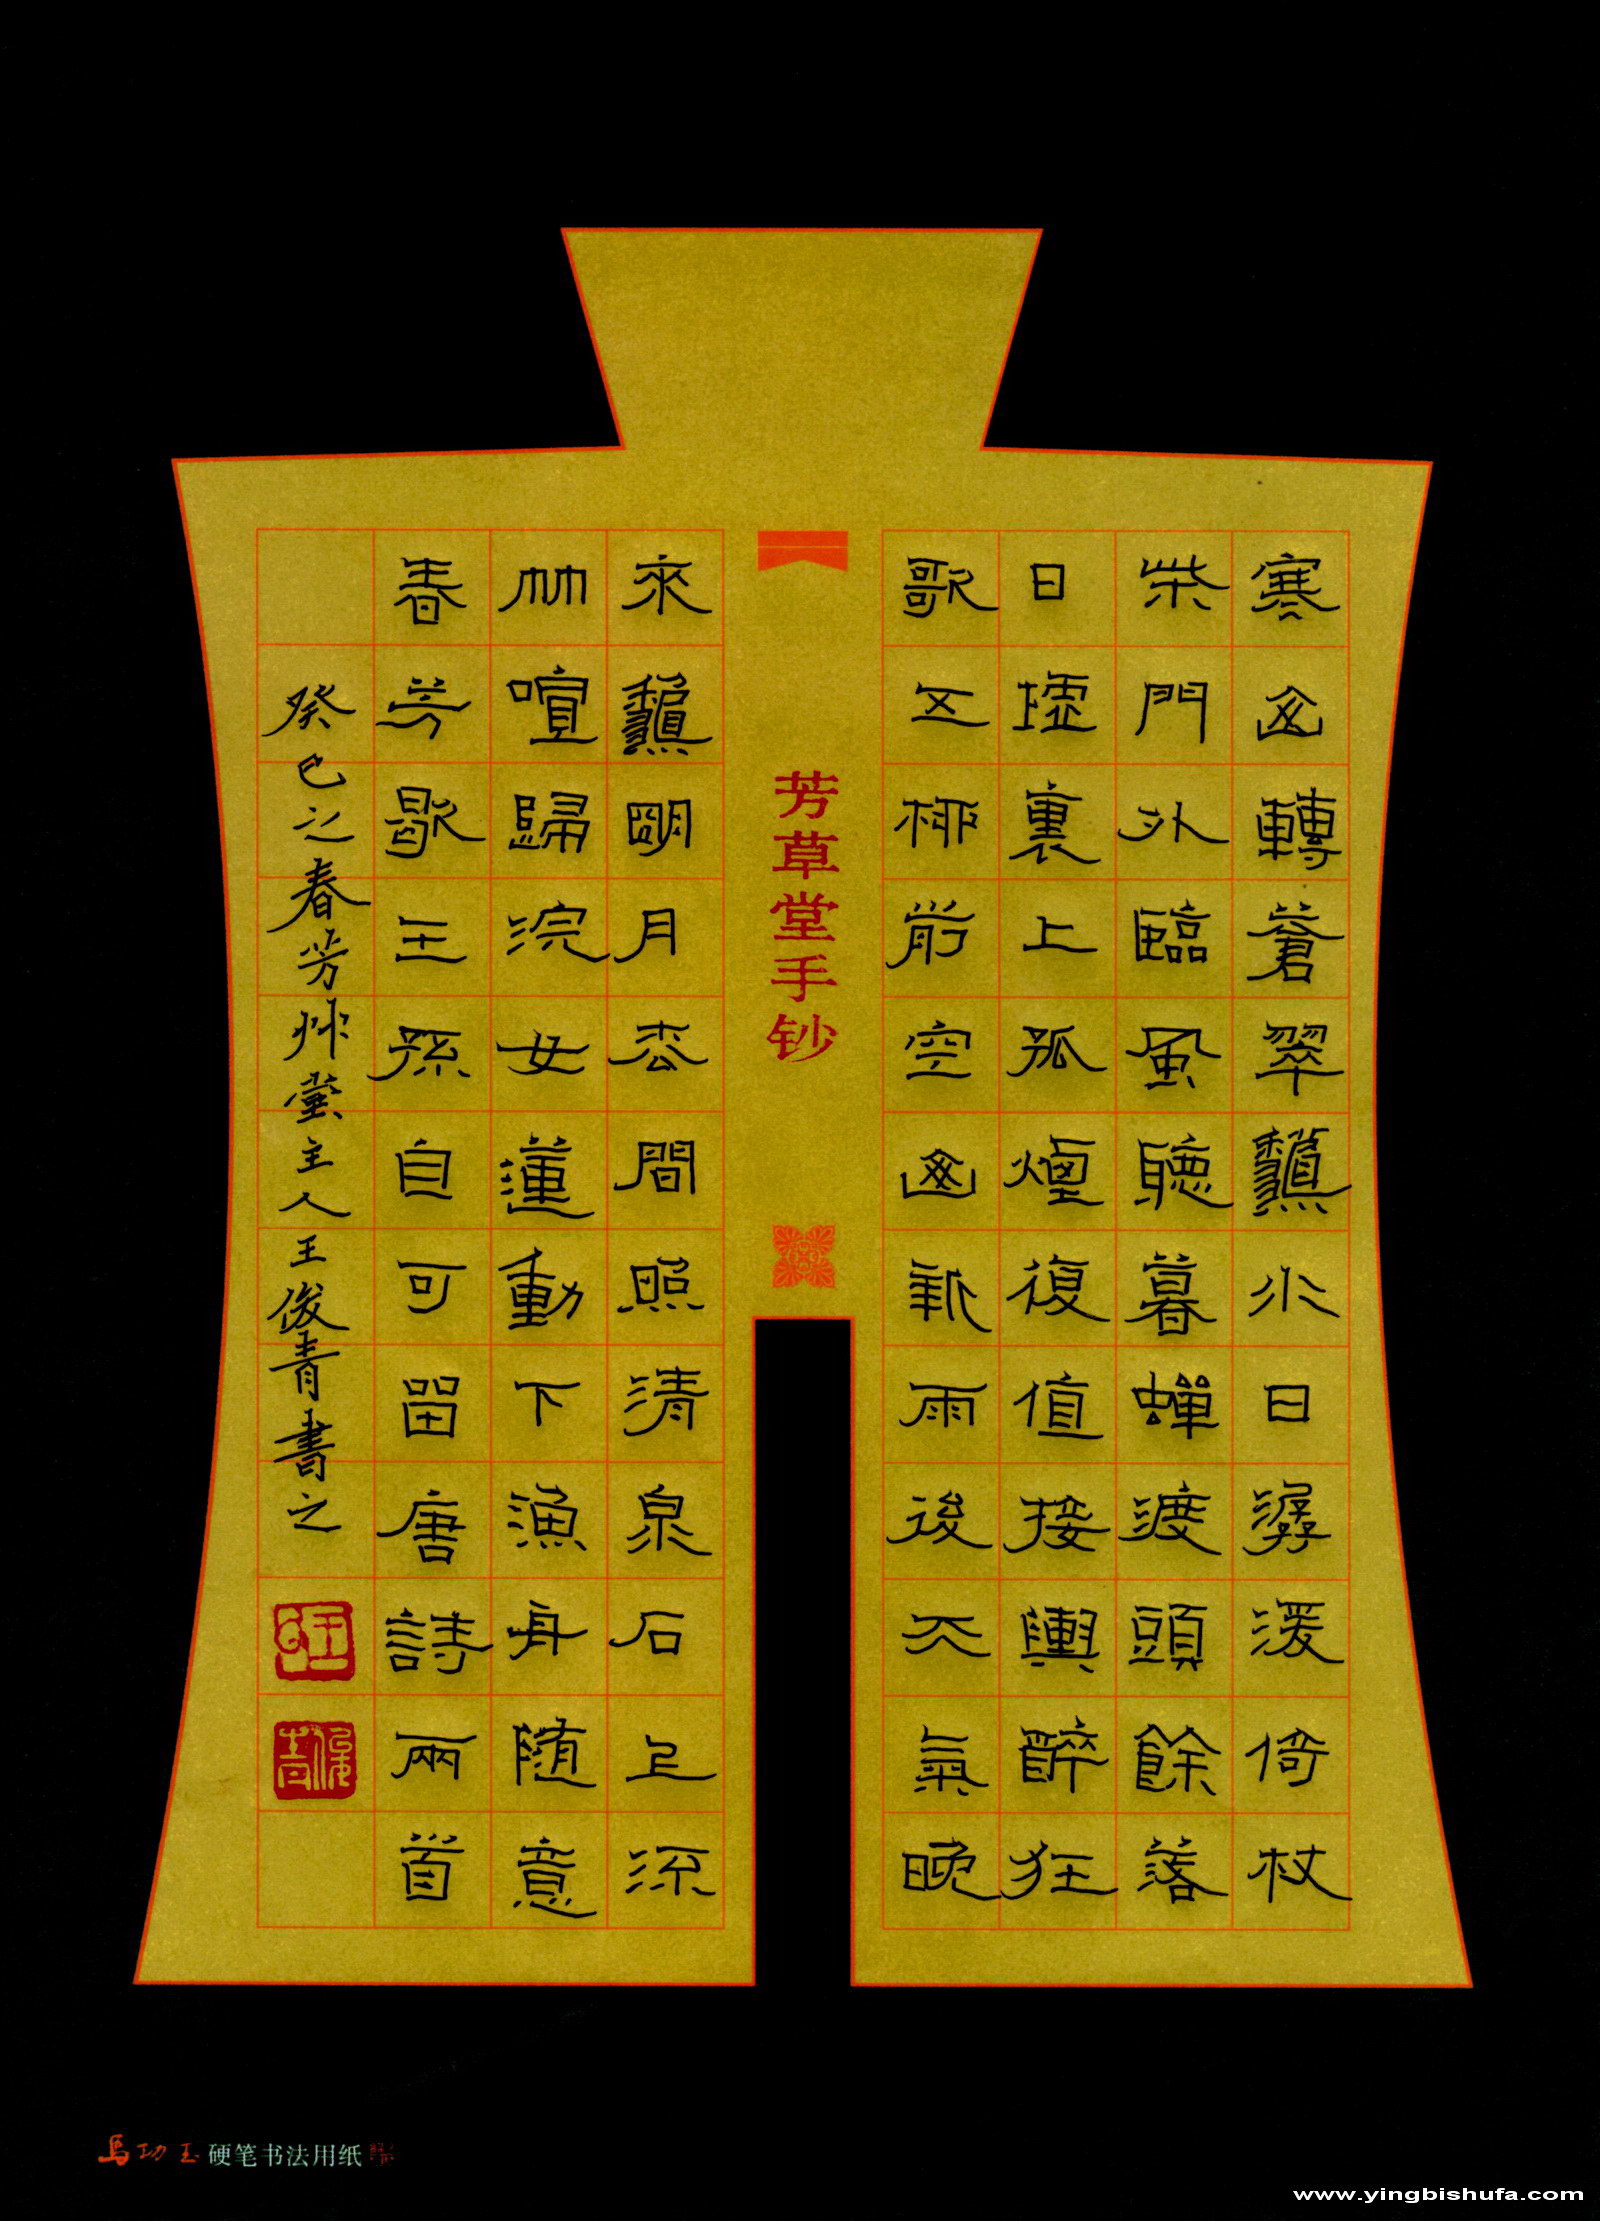 寒山轉蒼翠龝水日潺湲倚杖
柴門外臨風聽暮蟬渡頭餘落
日墟裏上孤煙復值接輿醉狂
歌五柳前空山新雨後天氣晚
芳草堂手钞
來龝明月松間照清泉石上流
竹喧歸浣女蓮動下漁舟隨意
春芳歇王孫自可留唐詩兩首
癸巳之春芳艸堂主人王俊青書之
俊青
馬功玉硬笔书法用纸
www.yingbishufa.com